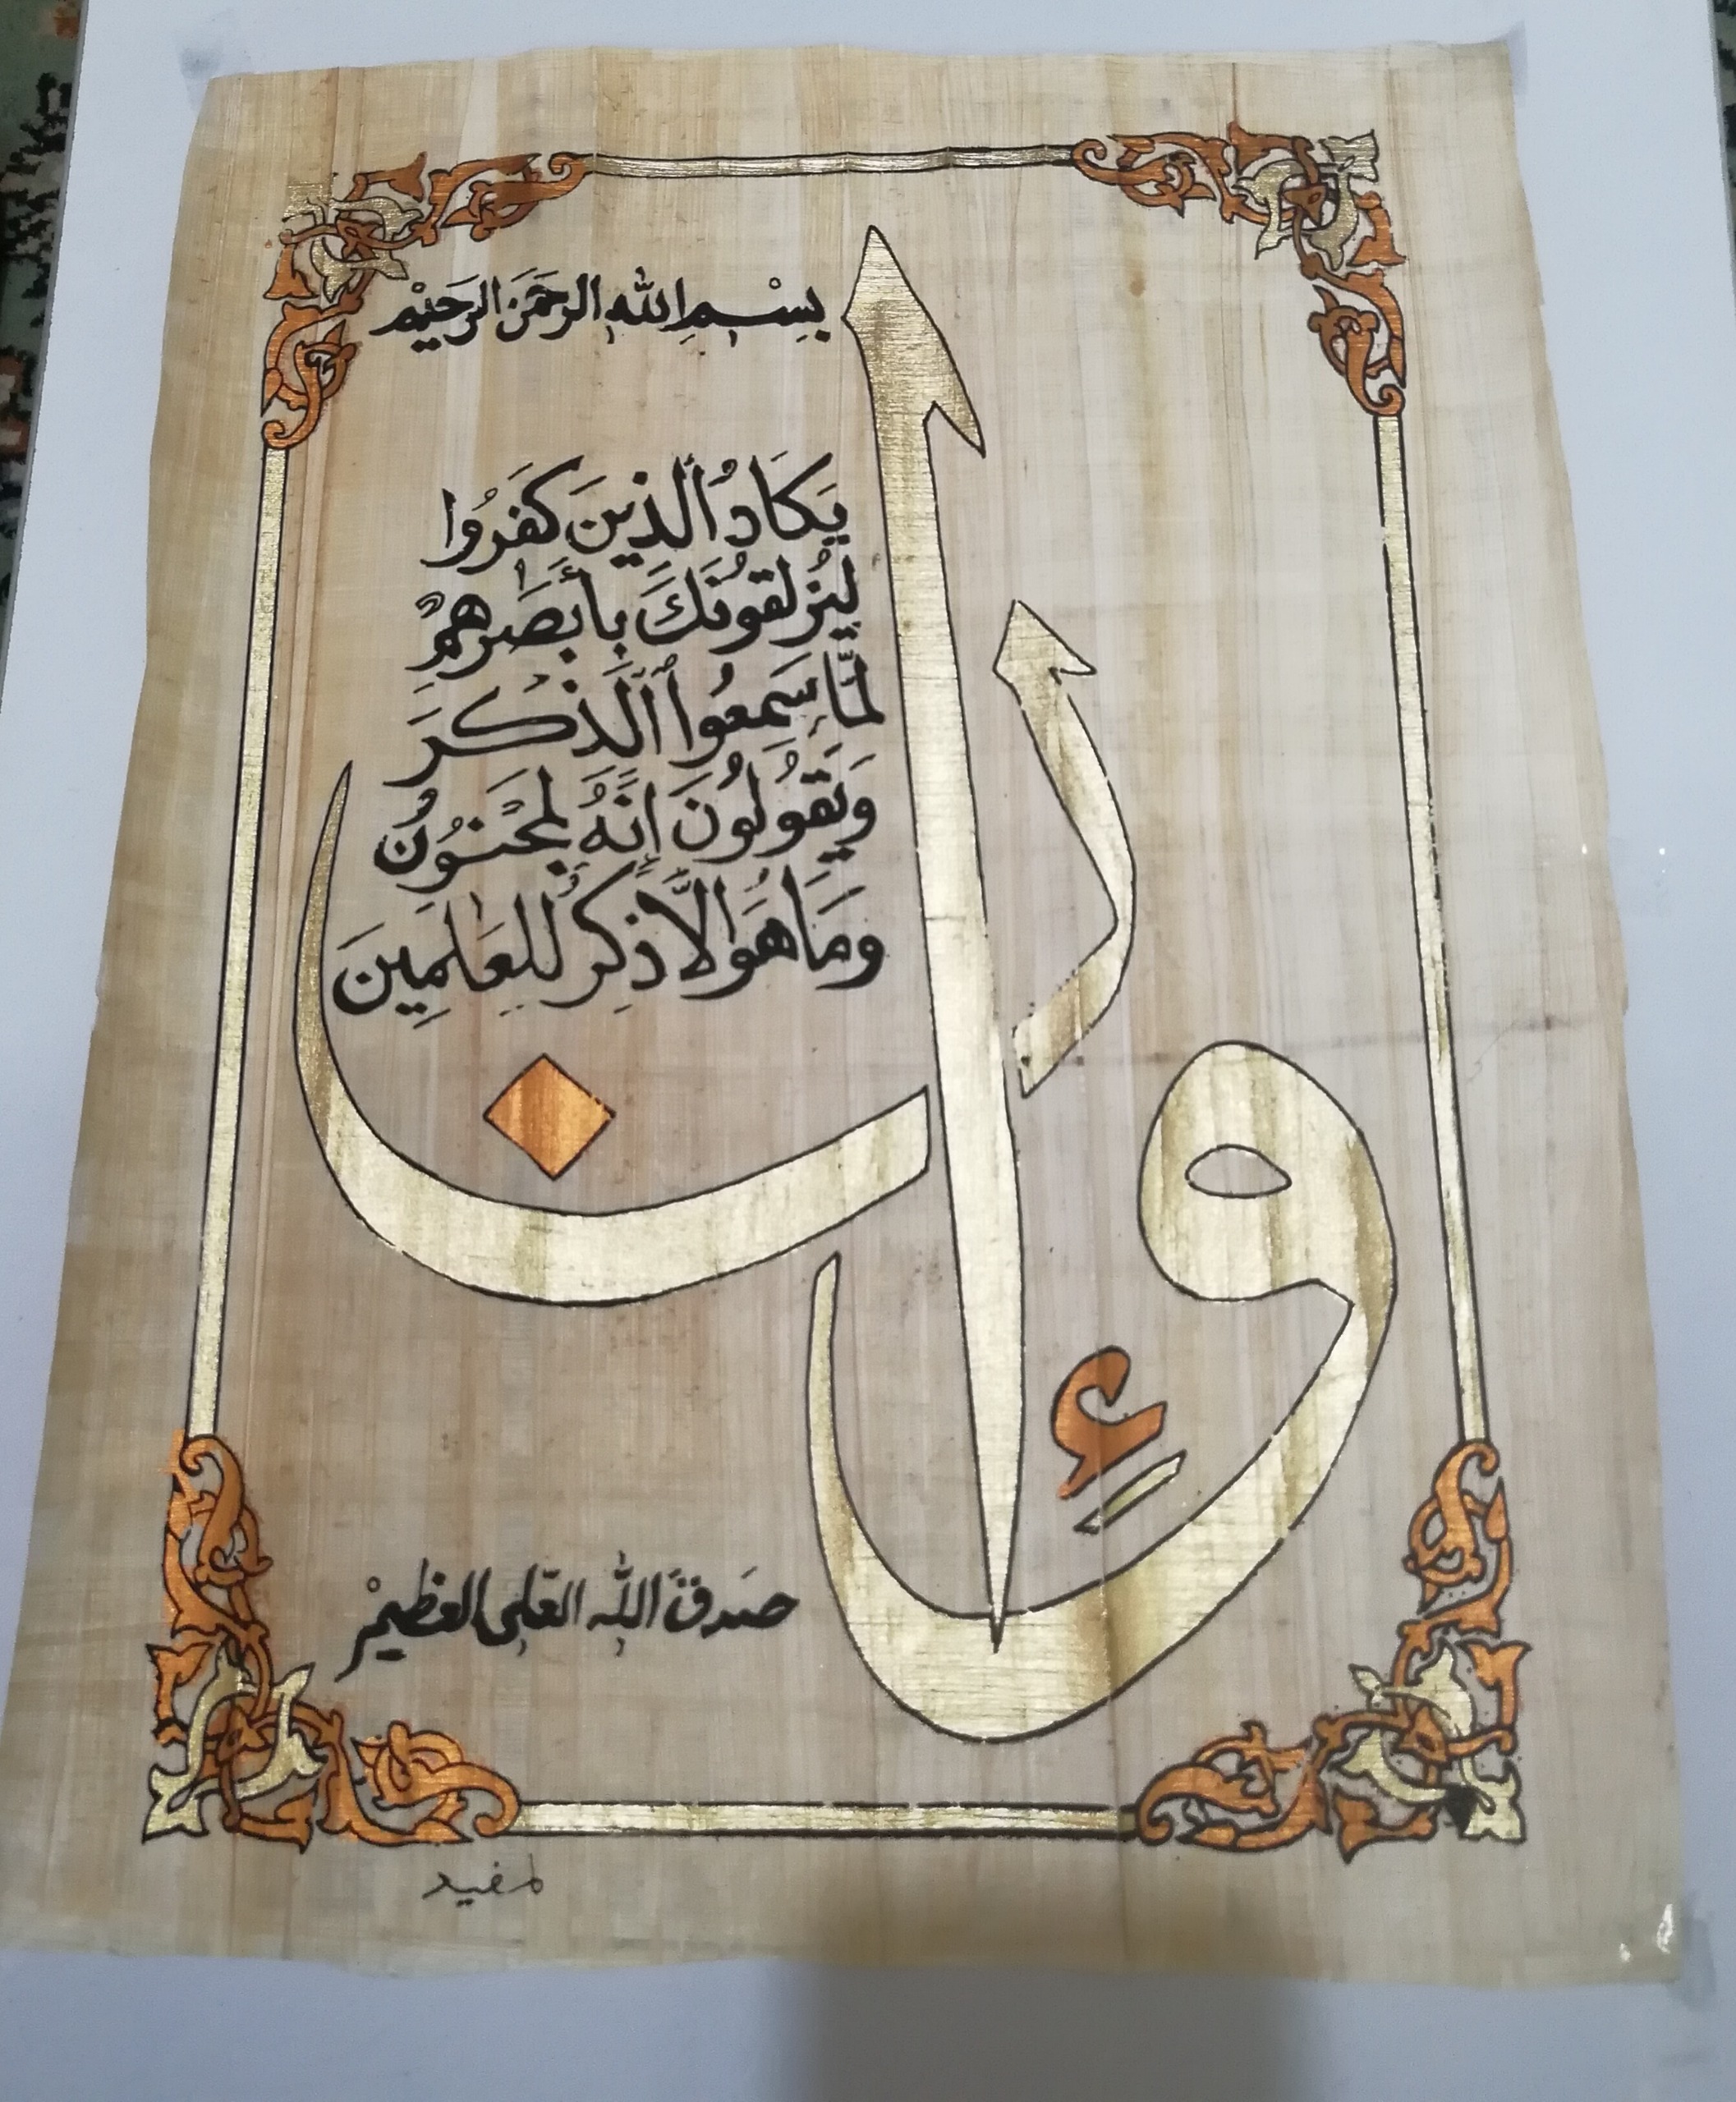 بِسْمِ اللهِ الرحمَن الرحَيْم
وإن
يَكَادُ ٱلَّذِينَ كَفَرُوا
لَيُزْلِقُونَكَ بِأَبْصَٰرِهِمْ
لَمَّا سَمِعُوا ٱلذِّكْرَ
وَيَقُولُونَ إِنَّهُ لَمَجْنُونٌ
وَمَا هُوَ إِلَّا ذِكْرٌ لِلْعَٰلَمِينَ
صَدقَ اللهُ العَلي العظيمْ
مفيد